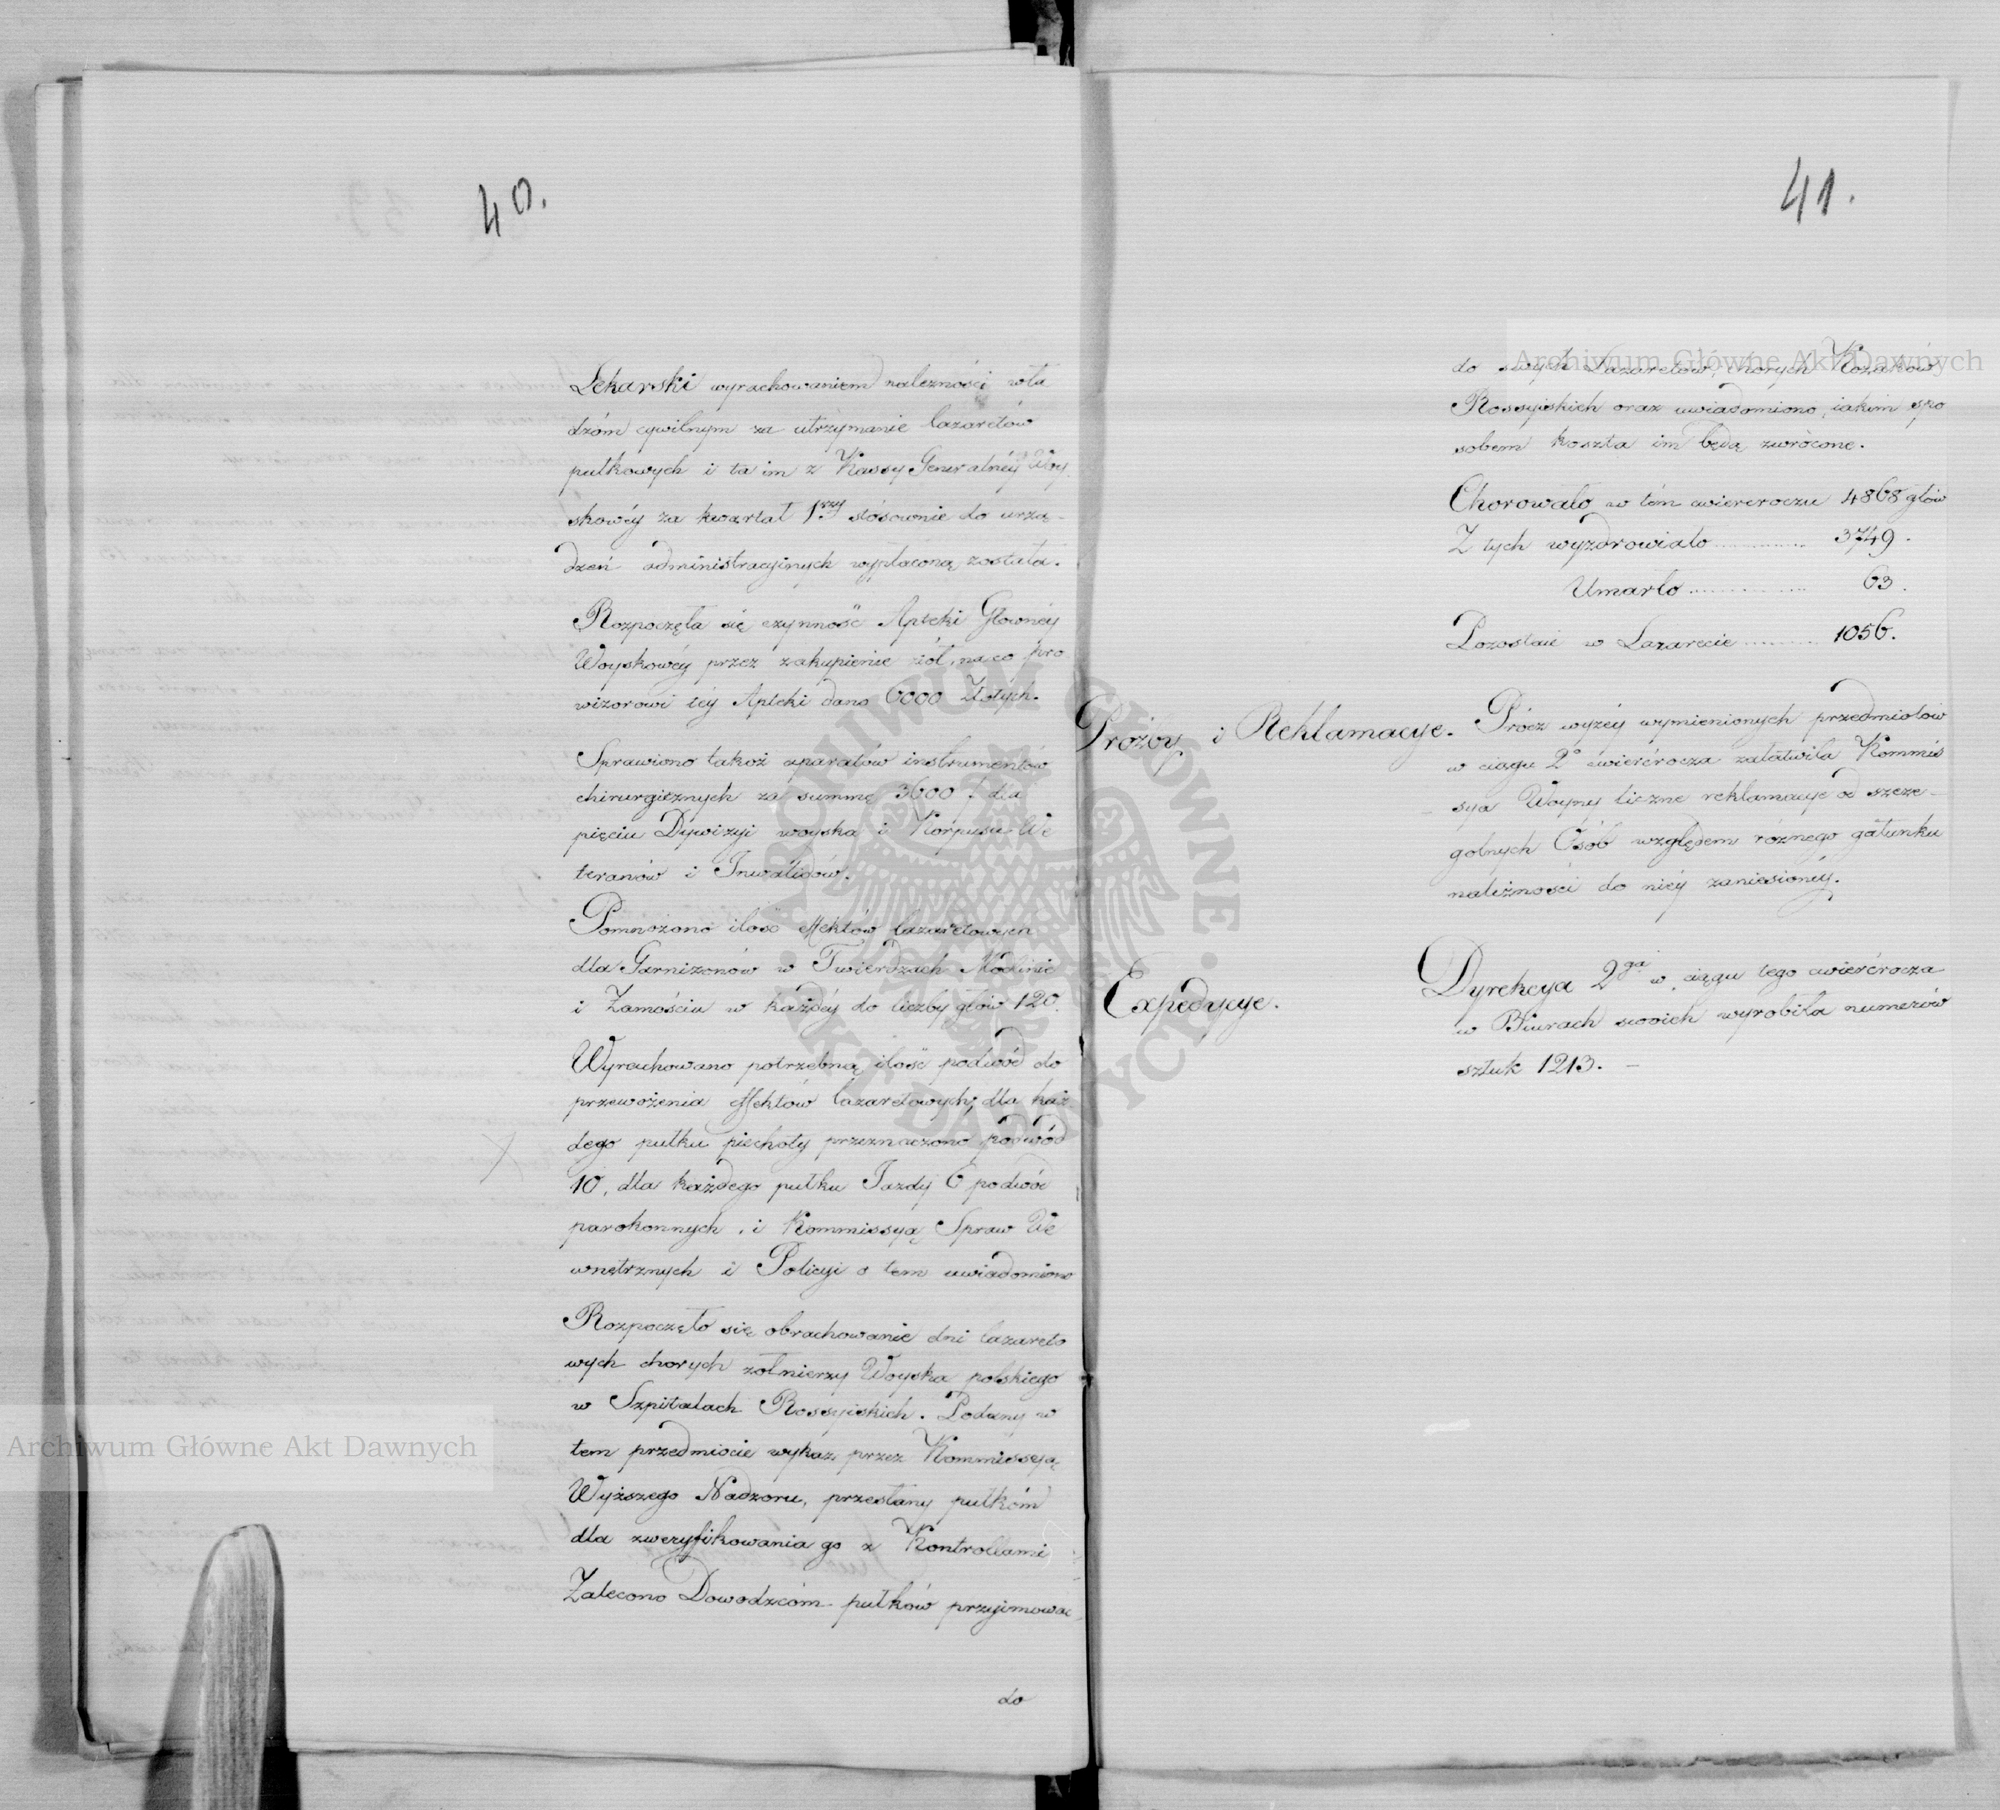 40.
Lekarski wyrachowaniem należności wła
dzóm cywilnym za utrzymanie lazaretów
pułkowych i ta im z Kassy Generalnéy Woy
skowéy za kwartał 1rzy stósownie do urzą-
dzeń administracyinych wypłaconą została.
Rozpoczęła się czynność Apteki Głownéy
Woyskowéy przez zakupienie ziół, na co pro
wizorowi téy Apteki dano 6000 Złotych.
Sprawiono takoż aparatów instrumentów
chirurgicznych za summę 3600 f. dla
pięciu Dywizyi woyska i Korpusu We
teranów i Inwalidów.
Pomnożono ilość effektów lazaretowych
dla Garnizonów w Twierdzach Modlinie
i Zamościu w każdéy do liczby głów 120.
Wyrachowano potrzebną ilość podwód do
przewożenia effektów lazaretowych; dla każ
dego pułku piechoty przeznaczono podwód
10, dla każdego pułku Jazdy 6 podwód
parokonnych, i Kommissyą Spraw We
wnętrznych i Policyi o tem uwiadomiono
Rozpoczęło się obrachowanie dni lazareto
wych chorych żołnierzy Woyska polskiego
w Szpitalach Rossyiskich. Podany w
tem przedmiocie wykaz przez Kommissyą
Wyższego Nadzoru, przesłany pułkóm
dla zweryfikowania go z Kontrollami
Zalecono Dowodzcóm pułków przyimować
do
41.
do swych Lazaretów, chorych Kozaków
Rossyiskich oraz uwiadomiono, iakim spo
sobem koszta im będą zwrócone.
Chorowało w tém cwiercroczu 4868 głów
Z tych wyzdrowiało ............ 3749.
Umarło ............ 63.
Pozostaie w Lazarecie ......... 1056.
Prózby i Reklamacye.
Prócz wyżéy wymienionych przedmiotów
w ciągu 2o cwierćrocza załatwiła Kommis
sya Woyny liczne reklamacye od szcze-
golnych Osób względem różnego gatunku
należności do niéy zaniesionéy.
Expedycye.
Dyrekcya 2ga w ciągu tego cwierćrocza
w Biurach swoich wyrobiła numerów
sztuk 1213. -
Archiwum Główne Akt Dawnych
Archiwum Główne Akt Dawnych
ARCHIWUM GŁÓWNE AKT DAWNYCH